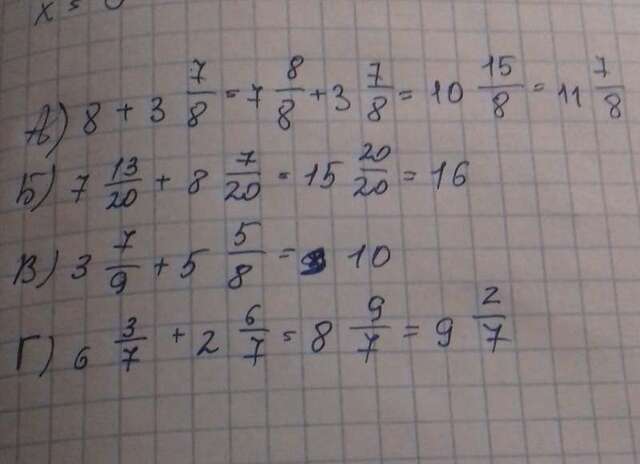 x =
А) 8 + 3 7/8 = 7 8/8 + 3 7/8 = 10 15/8 = 11 7/8
Б) 7 13/20 + 8 7/20 = 15 20/20 = 16
В) 3 7/9 + 5 5/8 = 10
Г) 6 3/7 + 2 6/7 = 8 9/7 = 9 2/7